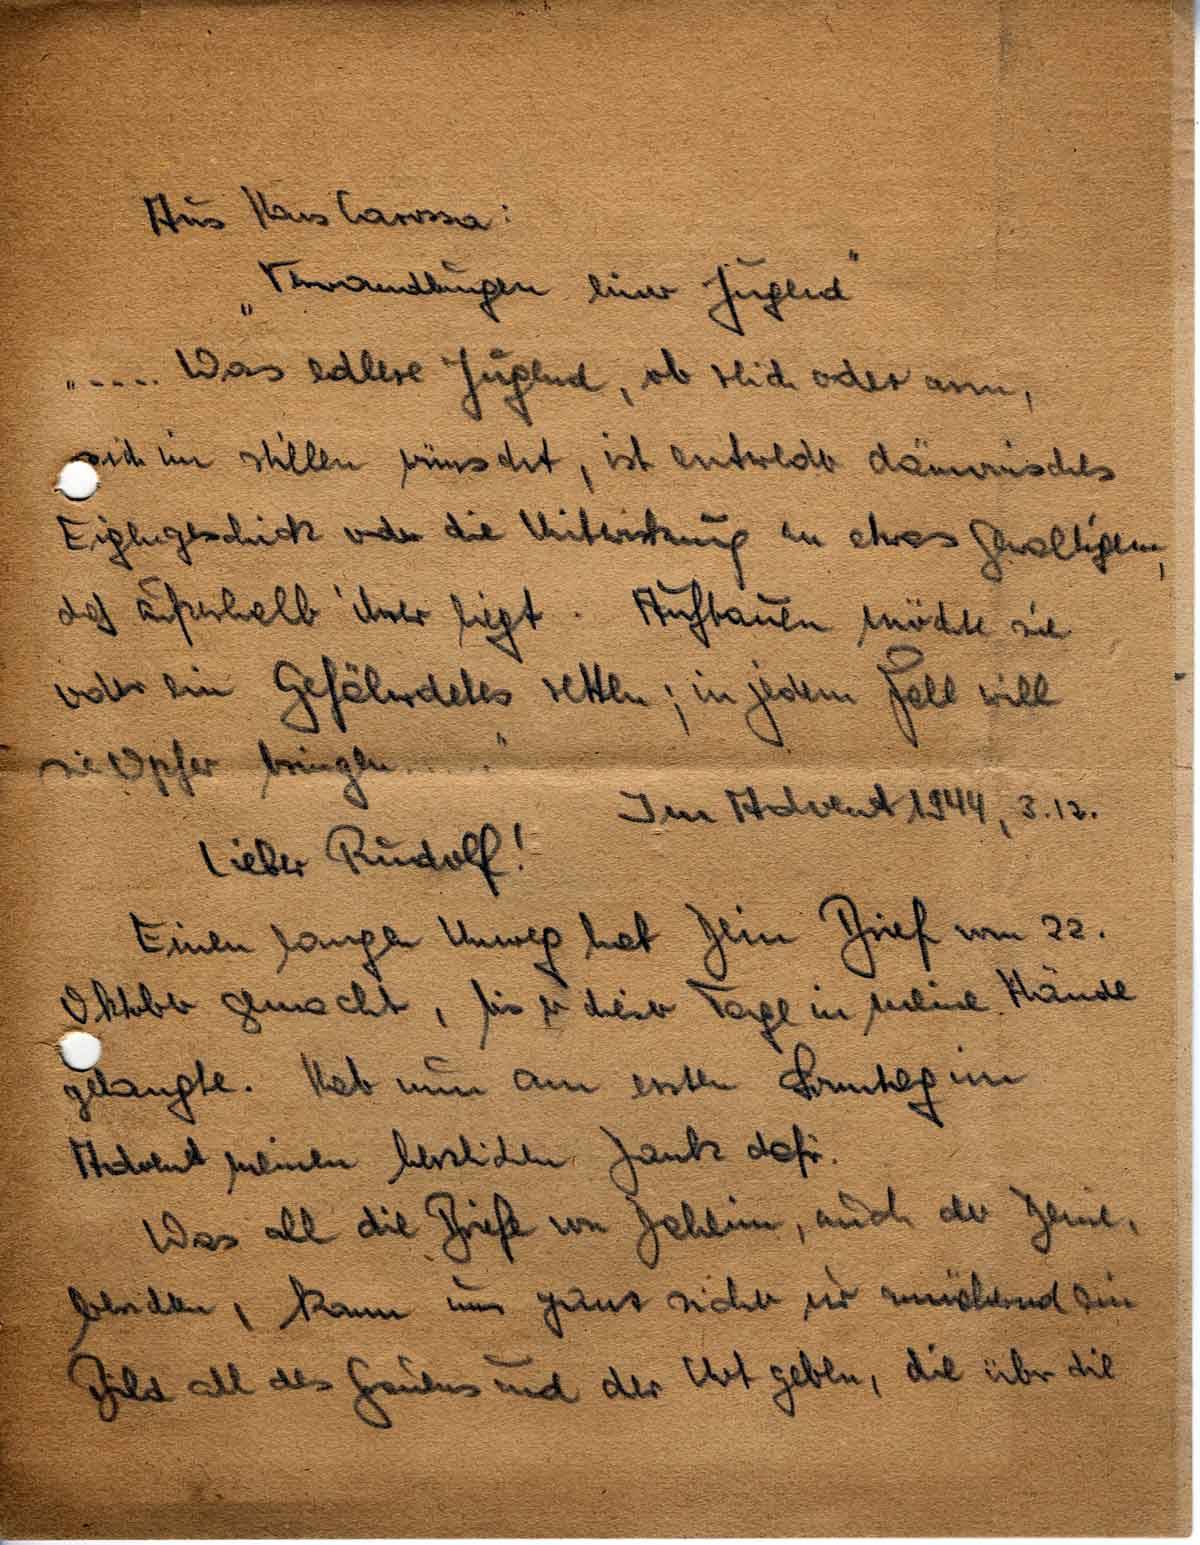 Aus Hans Carossa:
„Verwandlungen einer Jugend"
„.... Was edlere Jugend, ob reich oder arm,
sich im stillen wünscht, ist entweder dämonisches
Eigengeschick oder die Mitwirkung an etwas Gewaltigem,
das außerhalb ihrer liegt. Aufbauen möchte sie
oder ein Gefährdetes retten; in jedem Fall will
sie Opfer bringen....."
Im Advent 1944, 3.12.
Lieber Rudolf!
Einen langen Umweg hat Dein Brief vom 22.
Oktober gemacht, bis er dieser Tage in meine Hände
gelangte. Hab nun am ersten Sonntag im
Advent meinen herzlichen Dank dafür.
Was all die Briefe von Daheim, auch der Deine,
berichten, kann uns ganz sicher nur annähernd ein
Bild all des Grauens und der Not geben, die über die